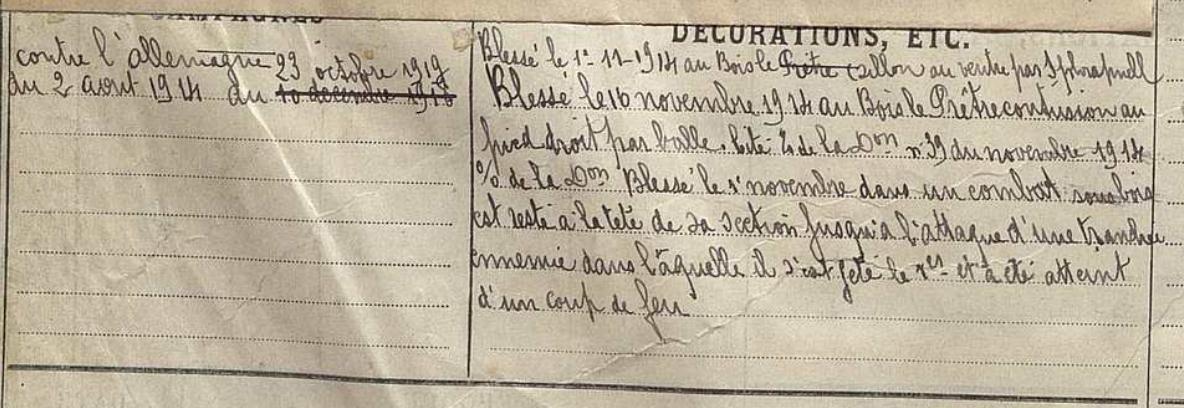 CAMPAGNES
contre l'allemagne
du 2 aout 1914 au 23 octobre 1919
10 decembre 1918
DÉCORATIONS, ETC.
Blessé le 1er 11-1914 au Bois le Prêtre sillon au ventre par Sphrapnell
Blessé le 16 novembre 1914 au Bois le Prêtre contusion au
pied droit par balle. Cité de la Don n° 39 du novembre 1914
% de la Don "Blessé le 1er novembre dans un combat sous bois
est resté à la tété de sa section jusqu'à l'attaque d'une tranchée
ennemie dans laquelle il s'est jeté le 1er et à été atteint
d'un coup de feu"